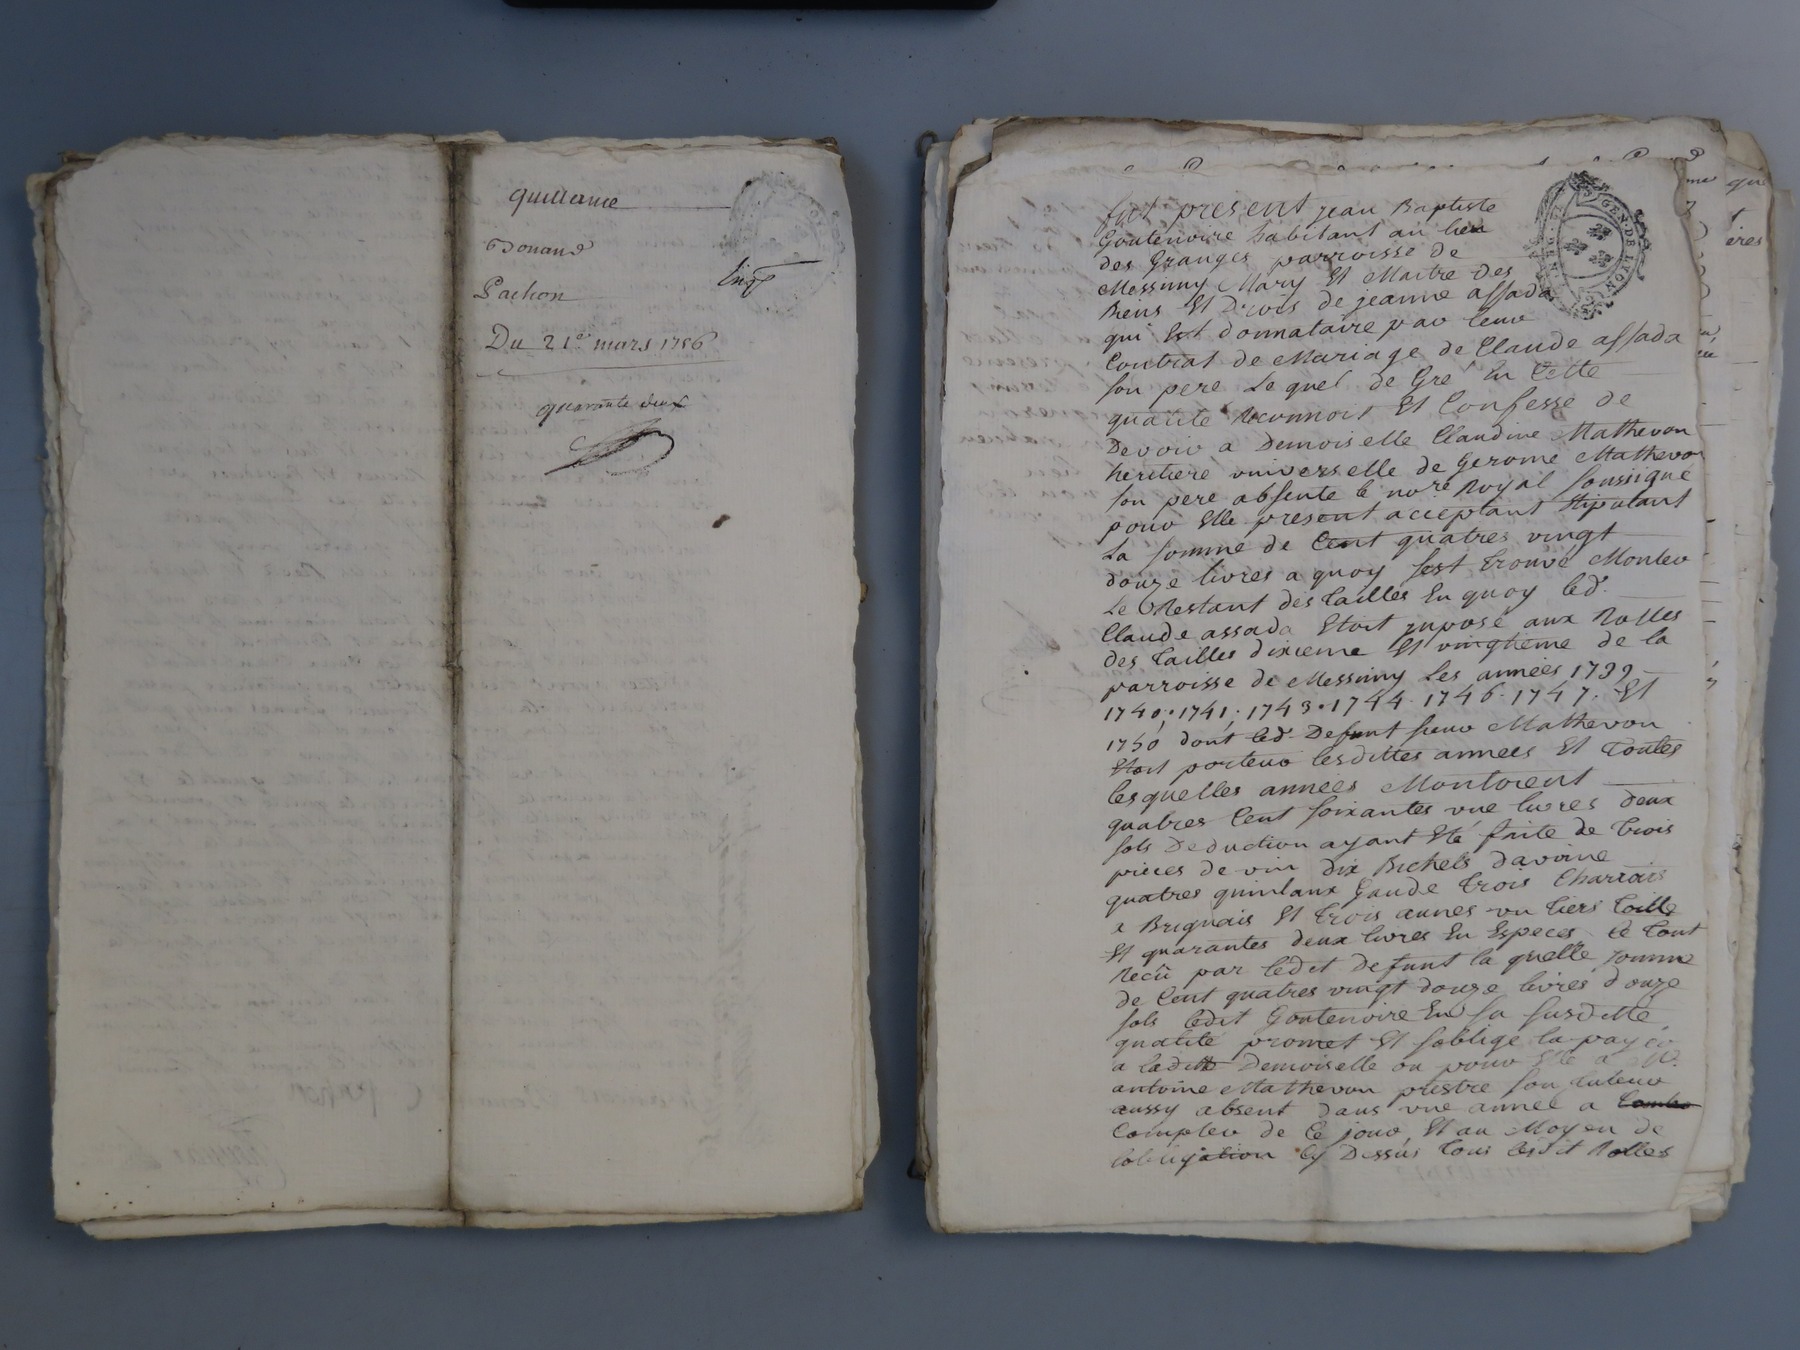 quittance
Donand
Pachon
Du 21e mars 1756
quarante deux
GEN. DE LYON
fut present jean Baptiste
Goutenoire habitant au lieu
des Granges parroisse de
Messimy Mary Et Maitre des
Biens Et Droits de jeanne assada
qui Est donnataire par leur
Contrat de Mariage de Claude assada
son pere Lequel de Gré En Cette
qualité Reconnoit Et Confesse de
Devoir a Demoiselle Claudine Mathevon
heritiere universelle de Gerome Mathevon
son pere absente le nore Royal soussigné
pour Elle present acceptant stipulant
La somme de Cent quatres vingt
douze livres a quoy sest trouvé Monter
Le Restant des tailles En quoy led.
Claude assada Etoit imposé aux Rolles
des tailles dixieme Et vingtieme de la
parroisse de Messimy Les années 1739
1740; 1741; 1743. 1744. 1746. 1747. Et
1750 dont led. Defunt sieur Mathevon
Etoit porteur lesdittes années Et toutes
lesquelles années Montoient
quatres Cent soixantes une livres deux
sols Deduction ayant Eté faite de trois
pieces de vin dix Bichets davoine
quatres quintaux Gaude trois Charrois
a Brignais Et trois aunes un tiers toille
Et quarantes deux livres En Especes le tout
Recû par ledit Defunt la quelle somme
de Cent quatres vingt douze livres douze
sols ledit Goutenoire En sa susditte
qualité promet Et soblige la payer
a ladite Demoiselle ou pour Elle a Mr.
antoine Mathevon prestre son tuteur
aussy absent dans une année a
Compter de Ce jour, Et au Moyen de
lobligation Cy Dessus Tous lesdit Rolles